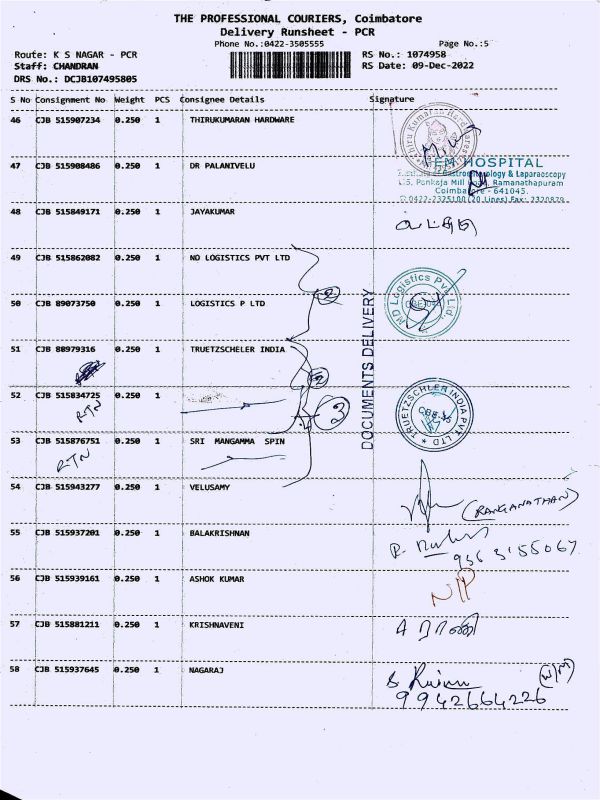 THE PROFESSIONAL COURIERS, Coimbatore
Delivery Runsheet - PCR
Phone No.:0422-3505555 Page No.:5
Route: K S NAGAR - PCR RS No.: 1074958
Staff: CHANDRAN RS Date: 09-Dec-2022
DRS No.: DCJB107495805
S No Consignment No Weight PCS Consignee Details Signature
46 CJB 515907234 0.250 1 THIRUKUMARAN HARDWARE
Thiru Kumaran Hardwares
47 CJB 515908486 0.250 1 DR PALANIVELU
GEM HOSPITAL
Institute of Gastroenterology & Laparaoscopy
Pankaja Mill Road, Ramanathapuram
Coimbatore - 641045.
0422-2325100 (20 Lines) Fax: 2320879
48 CJB 515849171 0.250 1 JAYAKUMAR
49 CJB 515862082 0.250 1 ND LOGISTICS PVT LTD
2
50 CJB 89073750 0.250 1 LOGISTICS P LTD
MD Logistics Pvt Ltd.
DOCUMENTS DELIVERY
51 CJB 88979316 0.250 1 TRUETZSCHELER INDIA
2
52 CJB 515834725 0.250 1
RTN
3
TRUETZSCHLER INDIA PVT LTD
CBE-35
53 CJB 515876751 0.250 1 SRI MANGAMMA SPIN
RTN
54 CJB 515943277 0.250 1 VELUSAMY
(RANGANATHAN)
55 CJB 515937201 0.250 1 BALAKRISHNAN
9363155067
56 CJB 515939161 0.250 1 ASHOK KUMAR
NP
57 CJB 515881211 0.250 1 KRISHNAVENI
A ராணி
58 CJB 515937645 0.250 1 NAGARAJ
9942664226